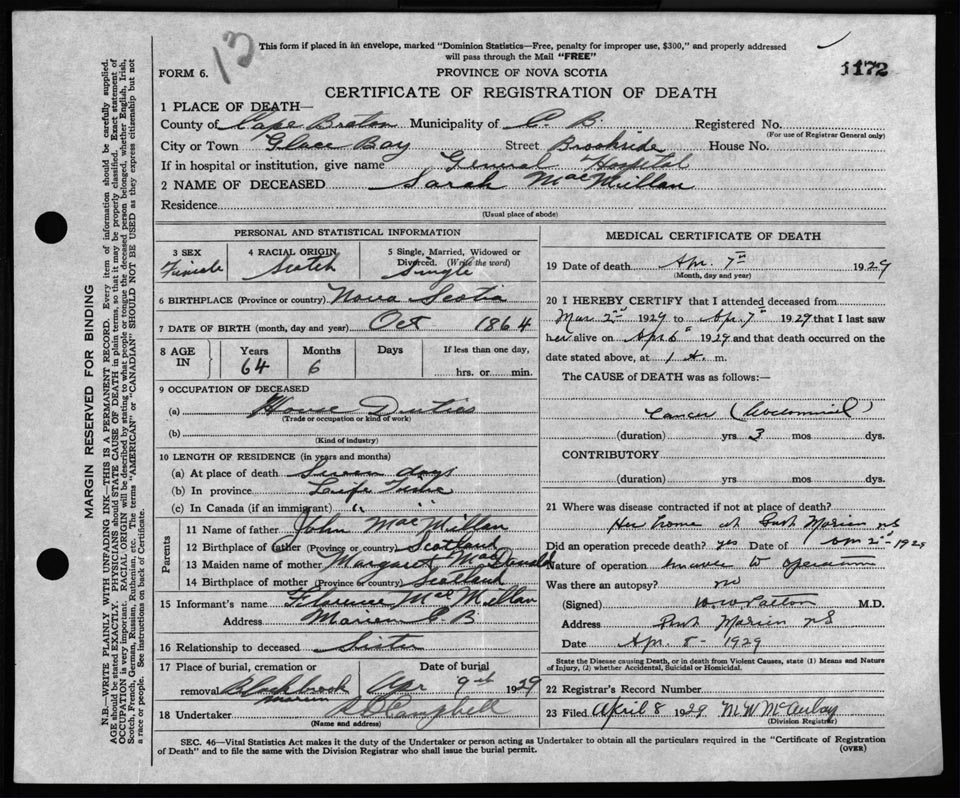 12
This form if placed in an envelope, marked "Dominion Statistics—Free, penalty for improper use, $300," and properly addressed
will pass through the Mail "FREE"
1172
FORM 6.
PROVINCE OF NOVA SCOTIA
CERTIFICATE OF REGISTRATION OF DEATH
1 PLACE OF DEATH—
County of Cape Breton Municipality of C. B. Registered No.
(For use of Registrar General only)
City or Town Glace Bay Street Brookside House No.
If in hospital or institution, give name General Hospital
2 NAME OF DECEASED Sarah MacMillan
Residence
(Usual place of abode)
PERSONAL AND STATISTICAL INFORMATION
3 SEX Female
4 RACIAL ORIGIN Scotch
5 Single, Married, Widowed or Divorced. (Write the word) Single
6 BIRTHPLACE (Province or country) Nova Scotia
7 DATE OF BIRTH (month, day and year) Oct 1864
8 AGE IN Years 64 Months 6 Days If less than one day, hrs. or min.
9 OCCUPATION OF DECEASED
(a) House Duties
(Trade or occupation or kind of work)
(b)
(Kind of industry)
10 LENGTH OF RESIDENCE (in years and months)
(a) At place of death Seven days
(b) In province Life Time
(c) In Canada (if an immigrant) " "
Parents
11 Name of father John MacMillan
12 Birthplace of father (Province or country) Scotland
13 Maiden name of mother Margaret MacDonald
14 Birthplace of mother (Province or country) Scotland
15 Informant's name Florence MacMillan
Address Marien C. B
16 Relationship to deceased Sister
17 Place of burial, cremation or removal Marien
Date of burial Apr 9th 1929
18 Undertaker Campbell
(Name and address)
MEDICAL CERTIFICATE OF DEATH
19 Date of death Apr. 7th 1929
(Month, day and year)
20 I HEREBY CERTIFY that I attended deceased from
Mar. 2nd 1929 to Apr. 7th 1929 that I last saw
her alive on Apr 6th 1929 and that death occurred on the
date stated above, at 1 A. m.
The CAUSE of DEATH was as follows:—
Cancer (Abdominal)
(duration) yrs 3 mos dys.
CONTRIBUTORY
(duration) yrs. mos. dys.
21 Where was disease contracted if not at place of death?
Her home at Port Morien NS
Did an operation precede death? yes Date of 2nd 1929
Nature of operation operation
Was there an autopsy? no
(Signed) Patton M.D.
Address Port Morien NS
Date Apr. 8 - 1929
State the Disease causing Death, or in death from Violent Causes, state (1) Means and Nature
of Injury, (2) whether Accidental, Suicidal or Homicidal.
22 Registrar's Record Number
23 Filed April 8 1929 M W McAulay
(Division Registrar)
SEC. 46—Vital Statistics Act makes it the duty of the Undertaker or person acting as Undertaker to obtain all the particulars required in the "Certificate of Registration
of Death" and to file the same with the Division Registrar who shall issue the burial permit.
(OVER)
MARGIN RESERVED FOR BINDING
N.B.—WRITE PLAINLY WITH UNFADING INK—THIS IS A PERMANENT RECORD. Every item of information should be carefully supplied.
AGE should be stated EXACTLY. PHYSICIANS should STATE CAUSE OF DEATH in plain terms, so that it may be properly classified. Exact statement of
OCCUPATION is very important. RACIAL ORIGIN will be described by stating to what people or tongue the deceased person belonged, whether English, Irish,
Scotch, French, German, Russian, Ruthenian, etc. The terms "AMERICAN" or "CANADIAN" SHOULD NOT BE USED as they express citizenship but not
a race or people. See instructions on back of Certificate.